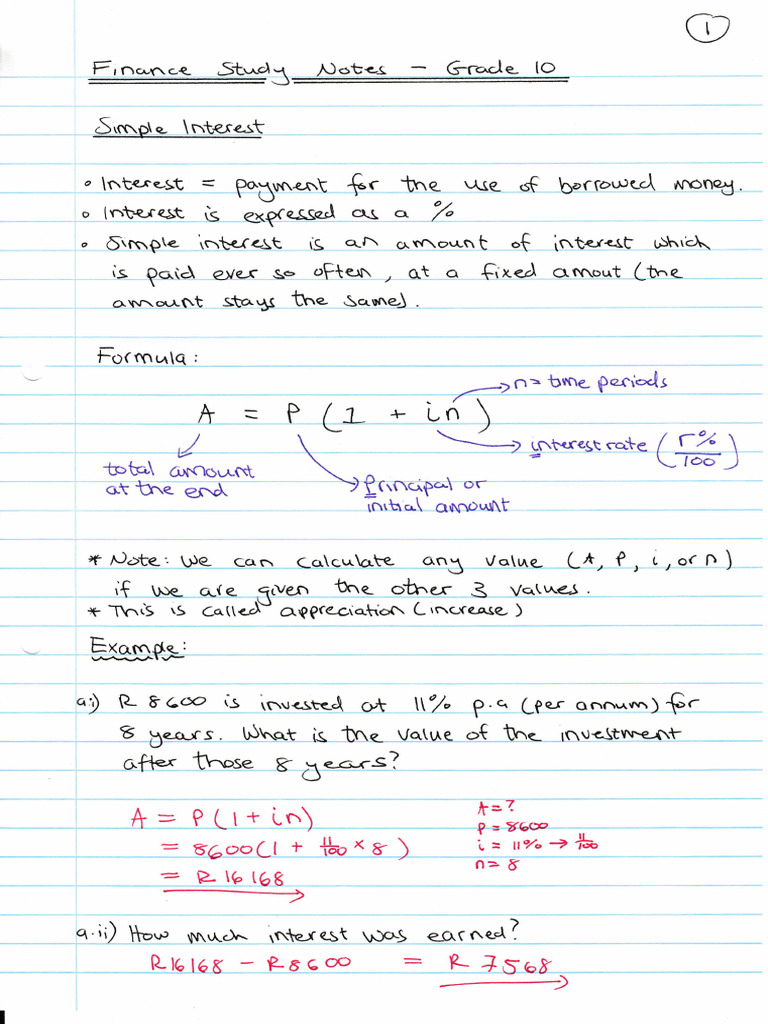 1
Finance Study Notes - Grade 10
Simple Interest
• Interest = payment for the use of borrowed money.
• Interest is expressed as a %
• Simple interest is an amount of interest which
is paid ever so often, at a fixed amout (the
amount stays the same).
Formula:
→ n = time periods
A = P (1 + in)
→ interest rate (r%/100)
total amount
at the end
→ Principal or
initial amount
* Note: We can calculate any value (A, P, i, or n)
if we are given the other 3 values.
* This is called appreciation (increase)
Example:
a.i) R 8600 is invested at 11% p.a (per annum) for
8 years. What is the value of the investment
after those 8 years?
A = P(1 + in)
= 8600(1 + 11/100 × 8)
= R 16168
A = ?
P = 8600
i = 11% → 11/100
n = 8
a.ii) How much interest was earned?
R16168 - R8600 = R 7568